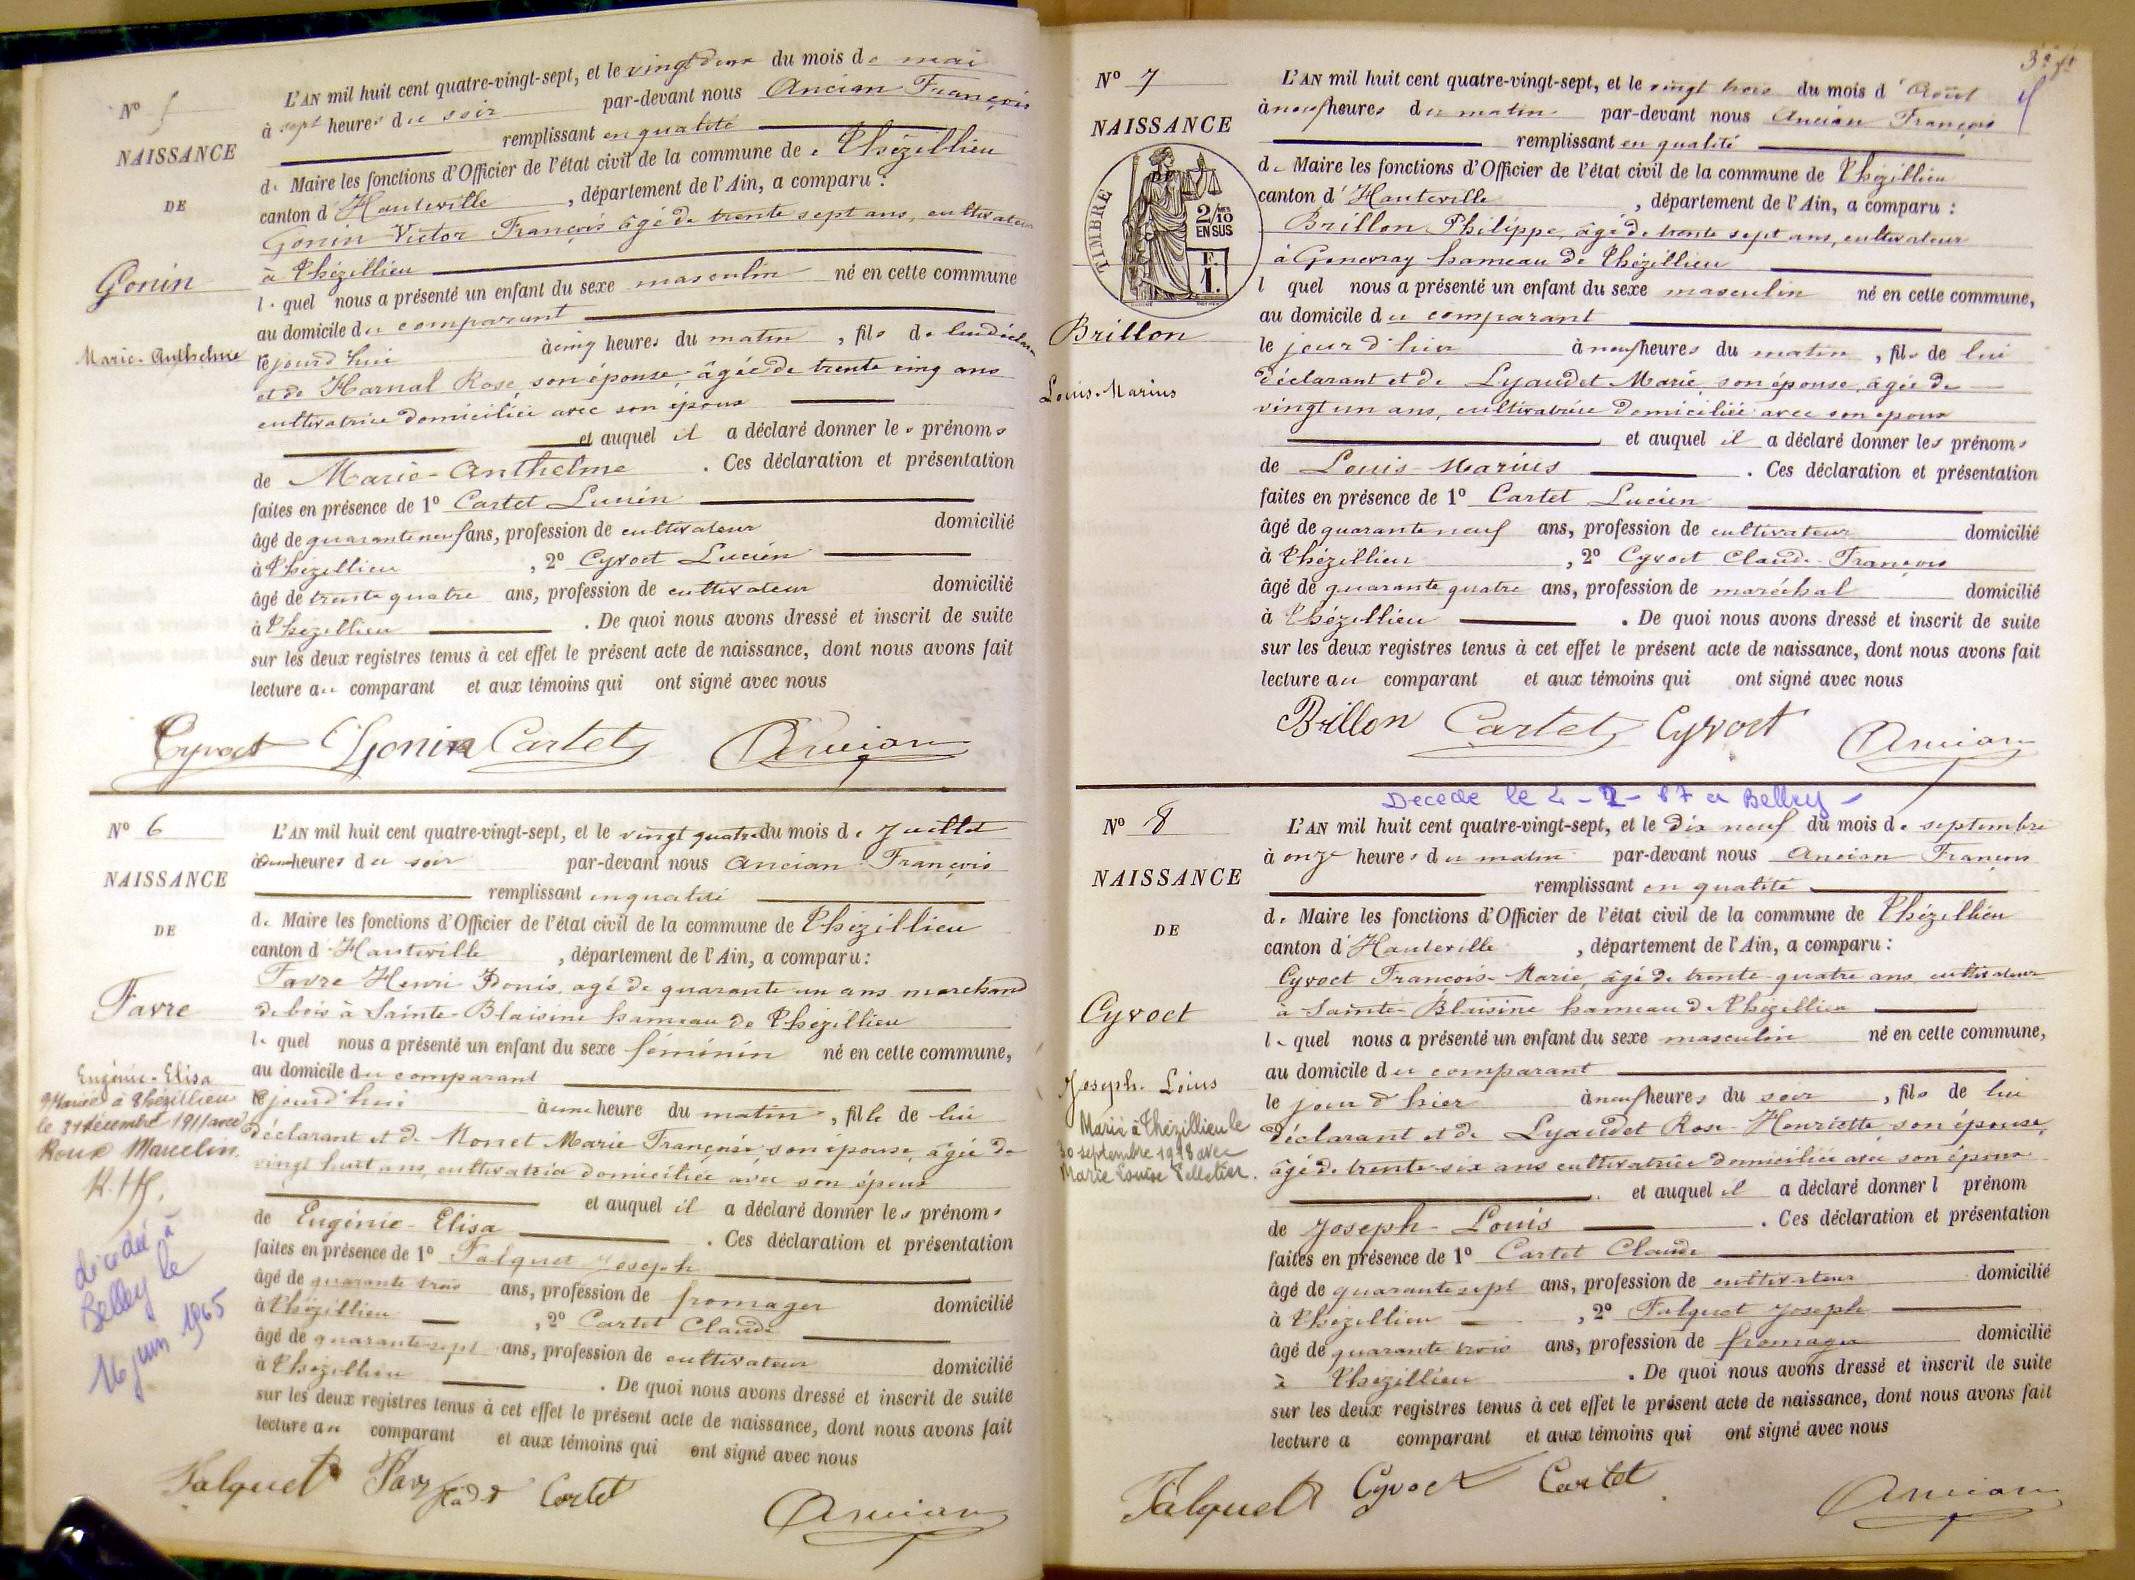 N° 5
NAISSANCE
DE
Gonin
Marie-Anthelme
L'AN mil huit cent quatre-vingt-sept, et le vingt deux du mois de mai
à sept heures du soir par-devant nous Ancian François
remplissant en qualité
de Maire les fonctions d'Officier de l'état civil de la commune de Thézillieu
canton d'Hauteville, département de l'Ain, a comparu :
Gonin Victor François âgé de trente sept ans, cultivateur
à Thézillieu
lequel nous a présenté un enfant du sexe masculin né en cette commune
au domicile du comparant
le jourd'hui à cinq heures du matin, fils de lui déclarant
et de Harnal Rose son épouse, âgée de trente cinq ans
cultivatrice domiciliée avec son époux
et auquel il a déclaré donner les prénoms
de Marie-Anthelme. Ces déclaration et présentation
faites en présence de 1° Cartet Lucien
âgé de quarante neuf ans, profession de cultivateur domicilié
à Thézillieu, 2° Cyvoct Lucien
âgé de trente quatre ans, profession de cultivateur domicilié
à Thézillieu. De quoi nous avons dressé et inscrit de suite
sur les deux registres tenus à cet effet le présent acte de naissance, dont nous avons fait
lecture au comparant et aux témoins qui ont signé avec nous
Cyvoct Gonin Cartet Ancian
N° 6
NAISSANCE
DE
Favre
Eugénie-Elisa
Mariée à Thézillieu
le 31 décembre 1911 avec
Roux Marcelin
décédée à
Belley le
16 juin 1965
L'AN mil huit cent quatre-vingt-sept, et le vingt quatre du mois de Juillet
à heures du soir par-devant nous Ancian François
remplissant en qualité
de Maire les fonctions d'Officier de l'état civil de la commune de Thézillieu
canton d'Hauteville, département de l'Ain, a comparu :
Favre Henri Donis, agé de quarante un ans marchand
de bois à Sainte-Blaisine hameau de Thézillieu
lequel nous a présenté un enfant du sexe féminin né en cette commune,
au domicile du comparant
le jourd'hui à une heure du matin, fille de lui
déclarant et de Monet Marie-Françoise son épouse, âgée de
vingt huit ans, cultivatrice domiciliée avec son époux
et auquel il a déclaré donner les prénoms
de Eugénie-Elisa. Ces déclaration et présentation
faites en présence de 1° Falquet Joseph
âgé de quarante trois ans, profession de fromager domicilié
à Thézillieu, 2° Cartet Claude
âgé de quarante sept ans, profession de cultivateur domicilié
à Thézillieu. De quoi nous avons dressé et inscrit de suite
sur les deux registres tenus à cet effet le présent acte de naissance, dont nous avons fait
lecture au comparant et aux témoins qui ont signé avec nous
Falquet Favre Cartet Ancian
N° 7
NAISSANCE
TIMBRE
2/10
EN SUS
F.
1.
Brillon
Louis-Marius
L'AN mil huit cent quatre-vingt-sept, et le vingt trois du mois d'Août
à neuf heures du matin par-devant nous Ancian François
remplissant en qualité
de Maire les fonctions d'Officier de l'état civil de la commune de Thézillieu
canton d'Hauteville, département de l'Ain, a comparu :
Brillon Philippe, âgé de trente sept ans, cultivateur
à Genevray hameau de Thézillieu
lquel nous a présenté un enfant du sexe masculin né en cette commune,
au domicile du comparant
le jour d'hier à neuf heures du matin, fils de lui
déclarant et de Lyaudet Marie son épouse âgée de
vingt un ans, cultivatrice domiciliée avec son époux
et auquel il a déclaré donner les prénoms
de Louis-Marius. Ces déclaration et présentation
faites en présence de 1° Cartet Lucien
âgé de quarante neuf ans, profession de cultivateur domicilié
à Thézillieu, 2° Cyvoct Claude-François
âgé de quarante quatre ans, profession de maréchal domicilié
à Thézillieu. De quoi nous avons dressé et inscrit de suite
sur les deux registres tenus à cet effet le présent acte de naissance, dont nous avons fait
lecture au comparant et aux témoins qui ont signé avec nous
Brillon Cartet Cyvoct Ancian
N° 8
NAISSANCE
DE
Cyvoct
Joseph-Louis
Marié à Thézillieu le
30 septembre 1918 avec
Marie Louise Pelletier.
Décédé le 2-2-67 à Belley
L'AN mil huit cent quatre-vingt-sept, et le dix neuf du mois de septembre
à onze heures du matin par-devant nous Ancian François
remplissant en qualité
de Maire les fonctions d'Officier de l'état civil de la commune de Thézillieu
canton d'Hauteville, département de l'Ain, a comparu :
Cyvoct François-Marie, âgé de trente-quatre ans, cultivateur
à Sainte-Blaisine hameau de Thézillieu
lequel nous a présenté un enfant du sexe masculin né en cette commune,
au domicile du comparant
le jour d'hier à neuf heures du soir, fils de lui
déclarant et de Lyaudet Rose-Henriette son épouse,
âgé de trente-six ans cultivatrice domiciliée avec son époux
et auquel il a déclaré donner l prénom
de Joseph-Louis. Ces déclaration et présentation
faites en présence de 1° Cartet Claude
âgé de quarante sept ans, profession de cultivateur domicilié
à Thézillieu, 2° Falquet Joseph
âgé de quarante trois ans, profession de fromager domicilié
à Thézillieu. De quoi nous avons dressé et inscrit de suite
sur les deux registres tenus à cet effet le présent acte de naissance, dont nous avons fait
lecture a comparant et aux témoins qui ont signé avec nous
Falquet Cyvoct Cartet Ancian